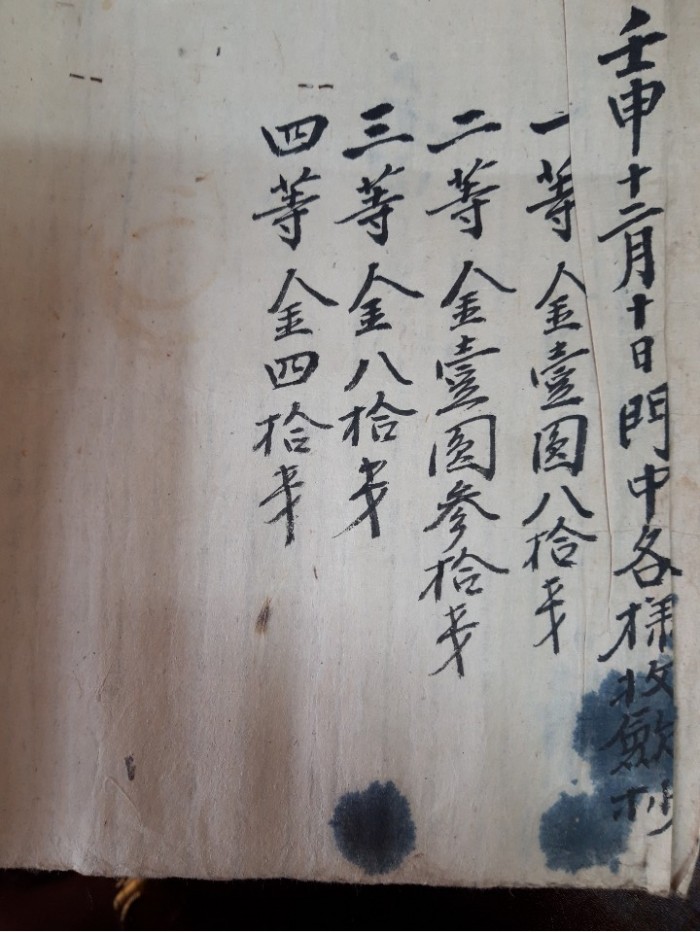 壬申十二月十日門中各樣收斂抄
一等金壹圓八拾戔
二等金壹圓參拾戔
三等金八拾戔
四等金四拾戔